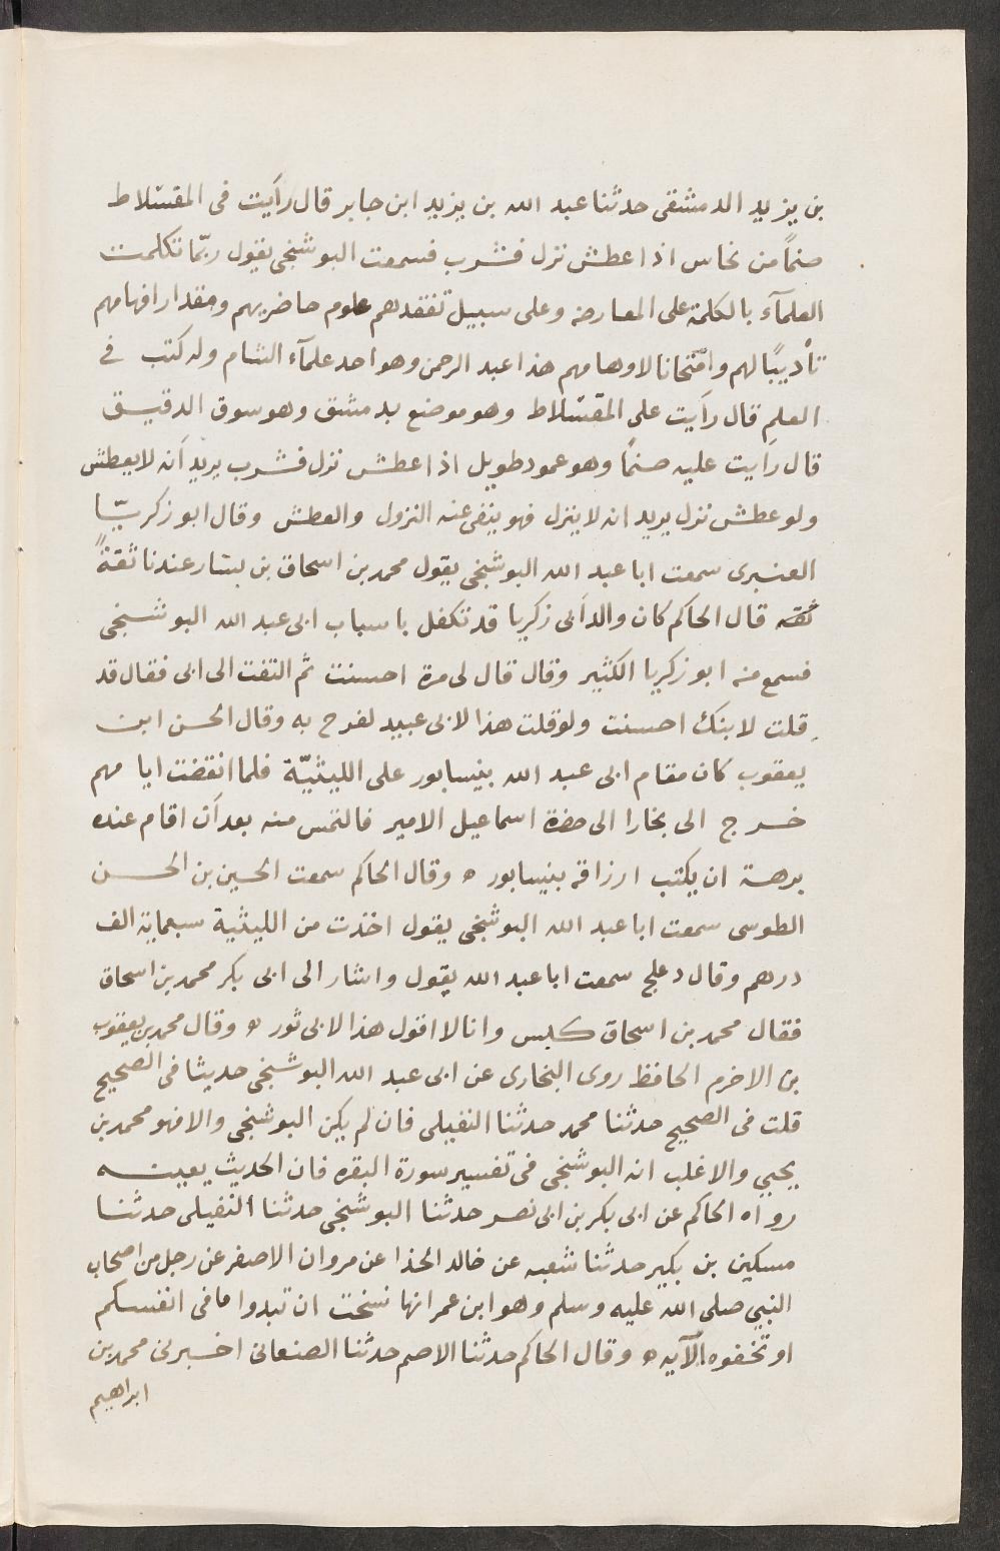 بن يزيد الدمشقى حدثنا عبد الله بن يزيد ابن جابر قال رأيت فى المقسلاط
صنماً من نحاس اذا عطش نزل فشرب فسمعت البوشنجى يقول ربّما تكلمت
العلمآء بالكلمة على المعارضه وعلى سبيل تفقدهم علوم حاضريهم ومقدار افهامهم
تأديبًا لهم وامتحانا لاوهامهم هذا عبد الرحمن وهو احد علمآء الشام وله كتب فى
العلم قال رأيت على المقسلاط وهو موضع بدمشق وهو سوق الدقيق
قال رأيت عليه صنمًا وهو عمود طويل اذا عطش نزل فشرب يريد أنه لا يعطش
ولو عطش نزل يريد انه لا ينزل فهو ينفى عنه النزول والعطش وقال ابو زكريّا
العنبرى سمعت ابا عبد الله البوشنجى يقول محمد بن اسحاق بن يسار عندنا ثقةً
ثقه قال الحاكم كان والد أبى زكريا قد تكفل باسباب ابى عبد الله البوشنجى
فسمع منه ابو زكريا الكثير وقال قال لى مرة احسنت ثم التفت الى ابى فقال قد
قلت لابنك احسنت ولو قلت هذا لابى عبيد لفرح به وقال الحسن ابن
يعقوب كان مقام ابى عبد الله بنيسابور على الليثيّة فلما انقضت ايامهم
خرج الى بخارا الى حضرة اسماعيل الامير فالتمس منه بعد أن اقام عنده
برهة ان يكتب ارزاقه بنيسابور ه وقال الحاكم سمعت الحسين بن الحسن
الطوسى سمعت ابا عبد الله البوشنجى يقول اخذت من الليثية سبعماية الف
درهم وقال دعلج سمعت ابا عبد الله يقول واشار الى ابى بكر محمد بن اسحاق
فقال محمد بن اسحاق كيس وانا لا اقول هذا لابى ثور ه وقال محمد بن يعقوب
بن الاخرم الحافظ روى البخارى عن ابى عبد الله البوشنجى حديثا فى الصحيح
قلت فى الصحيح حدثنا محمد حدثنا النفيلى فان لم يكن البوشنجى والا فهو محمد بن
يحيى والاغلب انه البوشنجى فى تفسير سورة البقره فان الحديث بعينه
رواه الحاكم عن ابى بكر بن ابى نصر حدثنا البوشنجى حدثنا النفيلى حدثنا
مسكين بن بكير حدثنا شعبه عن خالد الحذا عن مروان الاصفر عن رجل من اصحاب
النبى صلى الله عليه وسلم وهو ابن عمر انها نسخت ان تبدوا ما فى انفسكم
او تخفوه الآيه ه وقال الحاكم حدثنا الاصم حدثنا الصنعانى اخبرنى محمد بن
ابراهيم